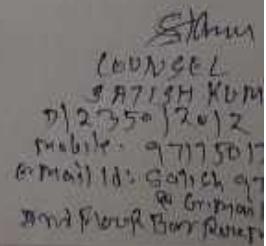 COUNSEL
SATISH KUM
D/2350/2012
Mobile. 9717501
Email Id: Satish 97
@ Gmail
2nd Floor Bar Room